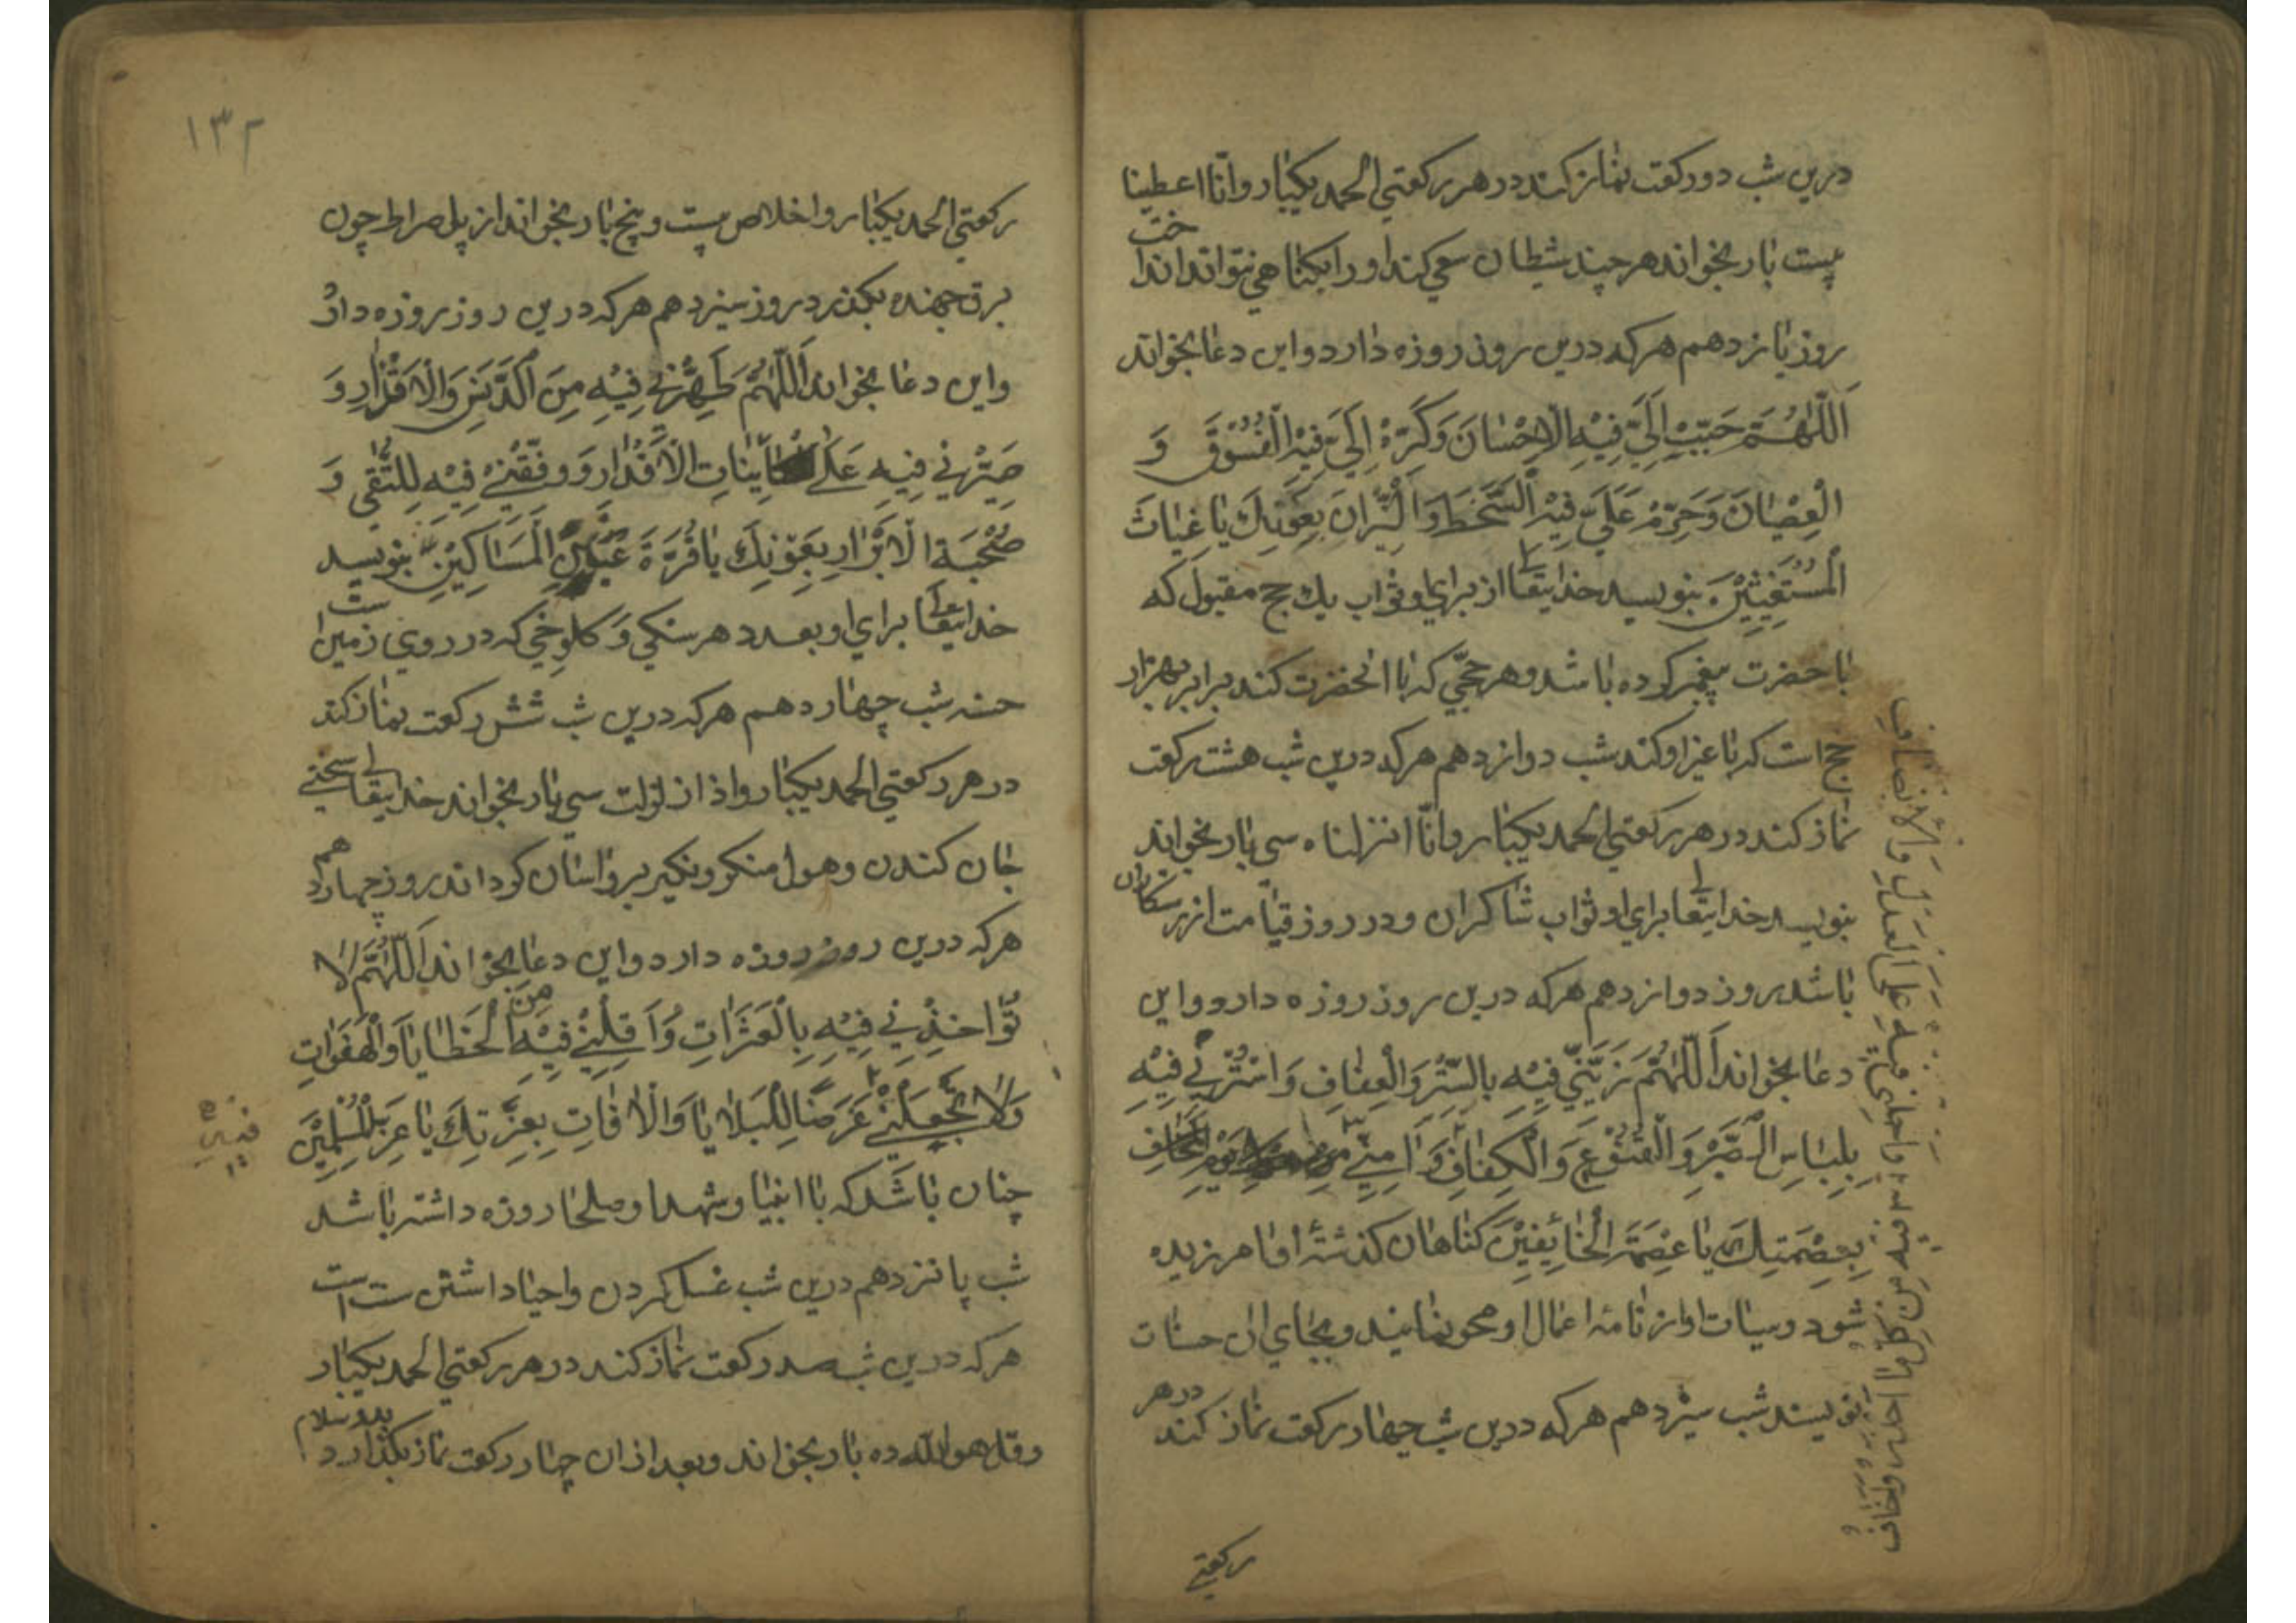 درین شب دو رکعت نماز کند در هر رکعتی الحمد یکبار و انّا اعطینا
بیست بار بخواند هر چند شیطان سعی کند او را بکناهی نتواند اندا
خت
روز یازدهم هر که درین روز روزه دارد و این دعا بخواند
اَللّٰهُمَّ حَبِّبْ اِلَيَّ فِيْهِ الْاِحْسٰانَ وَكَرِّهْ اِلَيَّ فِيْهِ الْفُسُوْقَ وَ
الْعِصْيٰانَ وَحَرِّمْ عَلَيَّ فِيْهِ السَّخَطَ وَالنِّيْرٰانَ بِعَوْنِكَ يٰا غِيٰاثَ
الْمُسْتَغِيْثِيْنَ بنویسد خدایتعالی از برای او ثواب یك حج مقبول که
با حضرت پیغمبر کرده باشد و هر حجّی که با انحضرت کند برابر بهزار
حج است که با غیر او کند شب دوازدهم هر که درین شب هشت رکعت
نماز کند در هر رکعتی الحمد یکبار و انّا انزلناه سی بار بخواند
بنویسد خدایتعالی برای او ثواب شاکران و در روز قیامت از رستکاران
باشد روز دوازدهم هر که درین روز روزه دارد و این
دعا بخواند اَللّٰهُمَّ زَيِّنِّي فِيْهِ بِالسِّتْرِ وَالْعِفٰافِ وَاسْتُرْنِي فِيْهِ
بِلِبٰاسِ الصَّبْرِ وَالْقُنُوْعِ وَالْكِفٰافِ وَاٰمِنِّي
بِعِصْمَتِكَ يٰا عِصْمَةَ الْخٰائِفِيْنَ کناهان کذشتهٔ او امرزیده
شود و سیات او از نامهٔ اعمال او محو نمایند و بجای ان حسنات
نویسند شب سیزدهم هر که درین شب چهار رکعت نماز کند در هر
رکعتی
وَاحْمِلْنِي فِيْهِ عَلَى الْعَدْلِ وَالْاِنْصٰافِ
۱۳۲
رکعتی الحمد یکبار و اخلاص بیست و پنج بار بخواند از پل صراط چون
برق جهنده بکذرد روز سیزدهم هر که درین روز روزه دارد
و این دعا بخواند اَللّٰهُمَّ طَهِّرْنِي فِيْهِ مِنَ الدَّنَسِ وَالْاَقْذٰارِ وَ
صَبِّرْنِي فِيْهِ عَلٰى كٰائِنٰاتِ الْاَقْدٰارِ وَوَفِّقْنِي فِيْهِ لِلتُّقٰى وَ
صُحْبَةِ الْاَبْرٰارِ بِعَوْنِكَ يٰا قُرَّةَ عَيْنِ الْمَسٰاكِيْنِ بنویسد
خدایتعالی برای او بعدد هر سنکی و کلوخی که در روی زمین است
حسنه شب چهاردهم هر که درین شب شش رکعت نماز کند
در هر رکعتی الحمد یکبار و اذا زلزلت سی بار بخواند خدایتعالی سختی
جان کندن و هول منکر و نکیر بر او اسان کرداند روز چهاردهم
هر که درین روز روزه دارد و این دعا بخواند اَللّٰهُمَّ لٰا
تُؤٰاخِذْنِي فِيْهِ بِالْعَثَرٰاتِ وَاَقِلْنِي فِيْهِ مِنَ الْخَطٰايٰا وَالْهَفَوٰاتِ
وَلٰا تَجْعَلْنِي غَرَضًا لِلْبَلٰايٰا وَالْاٰفٰاتِ بِعِزَّتِكَ يٰا عِزَّ الْمُسْلِمِيْنَ
فیه
چنان باشد که با انبیا و شهدا و صلحا روزه داشته باشد
شب پانزدهم درین شب غسل کردن و احیا داشتن سنت است
هر که درین شب صد رکعت نماز کند در هر رکعتی الحمد یکبار
و قل هو الله ده بار بخواند و بعد از ان چهار رکعت نماز بکذارد بدو سلام